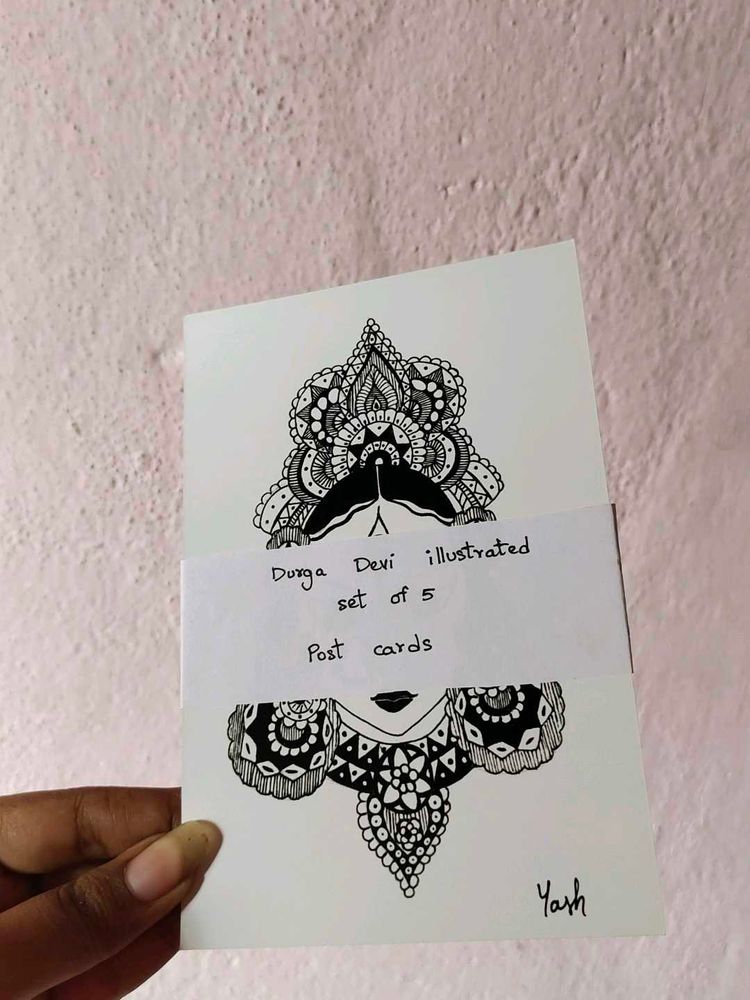 Durga Devi illustrated
set of 5
Post cards
Yash